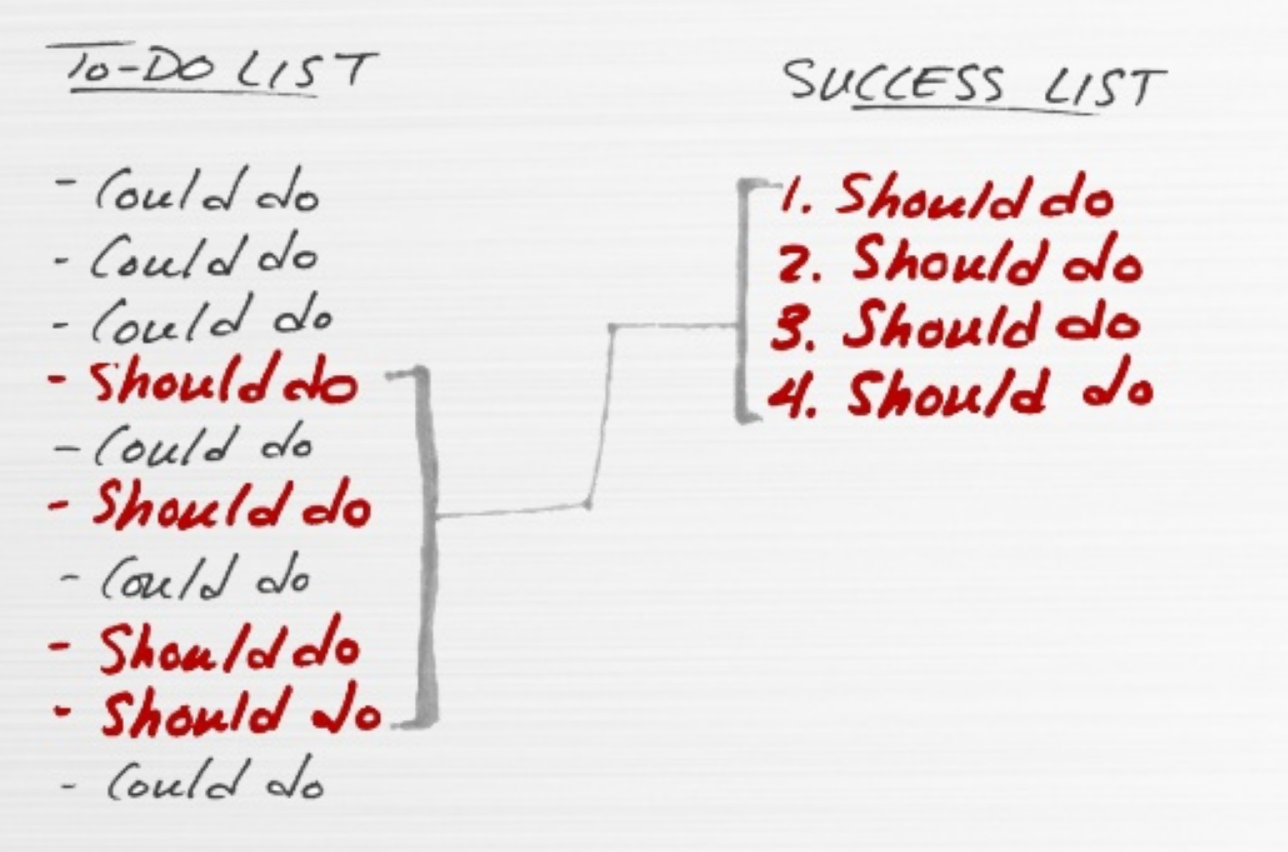 To-DO LIST
- Could do
- Could do
- Could do
- Should do
- Could do
- Should do
- Could do
- Should do
- Should do
- Could do
SUCCESS LIST
1. Should do
2. Should do
3. Should do
4. Should do